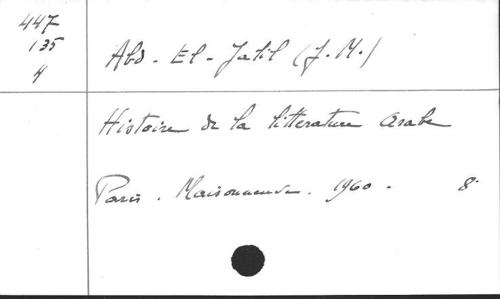 447
135
4
Abd. El-Jalil (J. M.)
Histoire de la littérature arabe
Paris. Maisonneuve. 1960. 8°